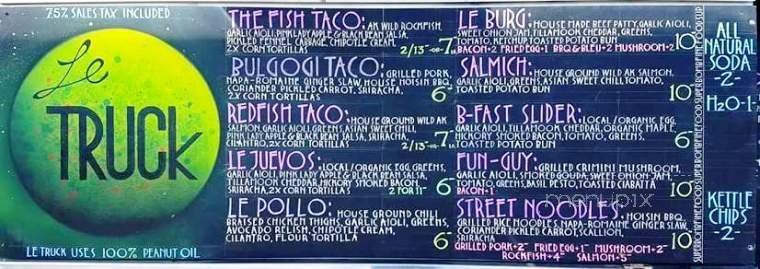 7.5% SALES TAX INCLUDED
Le
TRUCK
LE TRUCK USES 100% PEANUT OIL
THE FISH TACO: AK WILD ROCKFISH,
GARLIC AIOLI, PINK LADY APPLE & BLACK BEAN SALSA,
PICKLED FENNEL, CABBAGE, CHIPOTLE CREAM,
2X CORN TORTILLAS 2/13- OR 7-
BULGOGI TACO: GRILLED PORK,
NAPA-ROMAINE GINGER SLAW, HOUSE HOISIN BBQ,
CORIANDER PICKLED CARROT, SRIRACHA,
2X CORN TORTILLAS 6-
REDFISH TACO: HOUSE GROUND WILD AK
SALMON, GARLIC AIOLI, GREENS, ASIAN SWEET CHILI,
PINK LADY APPLE & BLACK BEAN SALSA, SRIRACHA,
CILANTRO, 2X CORN TORTILLAS 2/13- OR 7-
LE JUEVOS: LOCAL/ORGANIC EGG, GREENS,
GARLIC AIOLI, PINK LADY APPLE & BLACK BEAN SALSA,
TILLAMOOK CHEDDAR, HICKORY SMOKED BACON,
SRIRACHA, 2X CORN TORTILLAS 2 FOR 11- 6-
LE POLLO: HOUSE GROUND CHILI
BRAISED CHICKEN THIGHS, GARLIC AIOLI, GREENS,
AVOCADO RELISH, CHIPOTLE CREAM,
CILANTRO, FLOUR TORTILLA 6-
LE BURG: HOUSE MADE BEEF PATTY, GARLIC AIOLI,
SWEET ONION JAM, TILLAMOOK CHEDDAR, GREENS,
TOMATO, KETCHUP, TOASTED POTATO BUN 10-
BACON-2 FRIED EGG-1 BBQ & BLEU-2 MUSHROOM-2
SALMICH: HOUSE GROUND WILD AK SALMON,
GARLIC AIOLI, GREENS, ASIAN SWEET CHILI, TOMATO,
TOASTED POTATO BUN 10-
B-FAST SLIDER: LOCAL/ORGANIC EGG,
GARLIC AIOLI, TILLAMOOK CHEDDAR, ORGANIC MAPLE,
HICKORY SMOKED BACON, TOMATO, GREENS,
TOASTED POTATO BUN 6-
FUN-GUY: GRILLED CRIMINI MUSHROOM,
GARLIC AIOLI, SMOKED GOUDA, SWEET ONION JAM,
TOMATO, GREENS, BASIL PESTO, TOASTED CIABATTA
BACON-1 10-
STREET NOODLES: HOISIN BBQ,
GRILLED RICE NOODLES, NAPA-ROMAINE GINGER SLAW,
CORIANDER PICKLED CARROT, SCALLION,
SRIRACHA 10-
GRILLED PORK-2 FRIED EGG-1 MUSHROOM-2
ROCKFISH-4 SALMON-5
ALL
NATURAL
SODA
-2-
H2O-1-
KETTLE
CHIPS
-2-
menupix